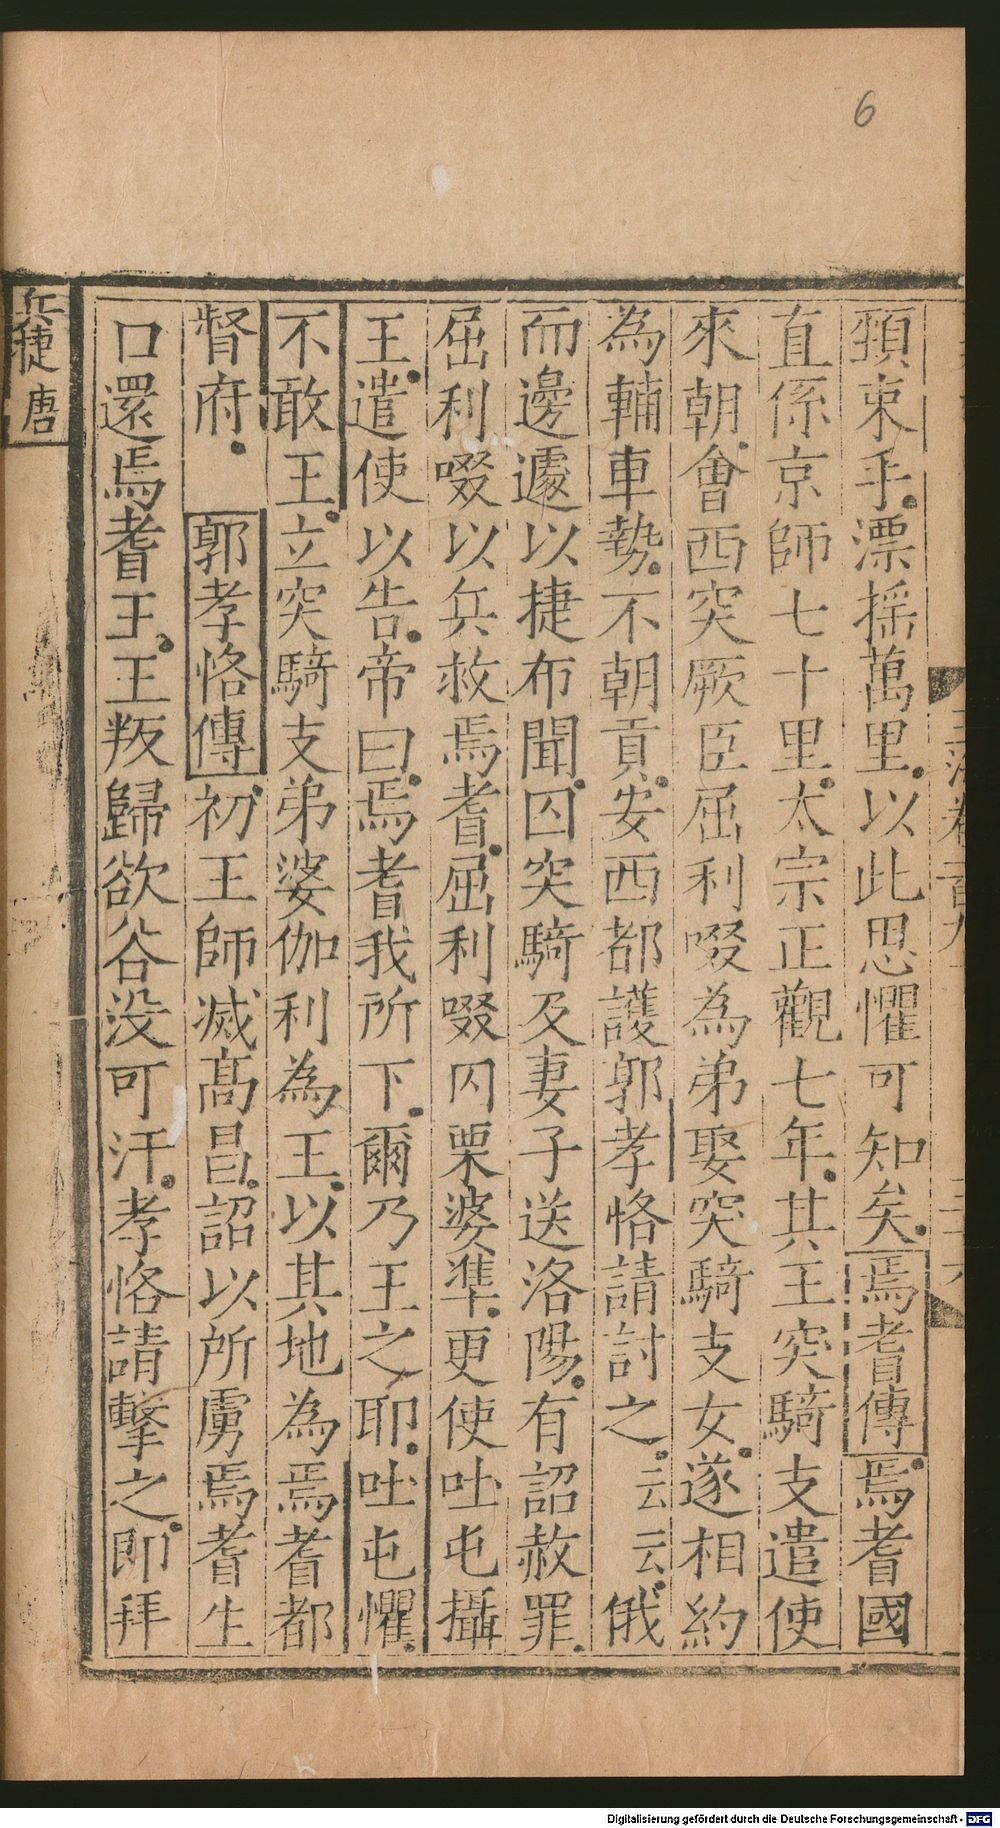 6
頚束手漂揺萬里以此思懼可知矣焉耆傳焉耆國
直係京師七十里太宗正觀七年其王突騎支遣使
來朝會西突厥臣屈利啜為弟娶突騎支女遂相約
為輔車勢不朝貢安西都護郭孝恪請討之云云俄
而邊遽以捷布聞囚突騎及妻子送洛陽有詔赦罪
屈利啜以兵救焉耆屈利啜囚栗婆準更使吐屯攝
王遣使以告帝曰焉耆我所下爾乃王之耶吐屯懼
不敢王立突騎支弟婆伽利為王以其地為焉耆都
督府郭孝恪傳初王師滅髙昌詔以所虜焉耆生
口還焉耆王王叛歸欲谷没可汗孝恪請擊之即拜
兵捷唐
Digitalisierung gefördert durch die Deutsche Forschungsgemeinschaft - DFG